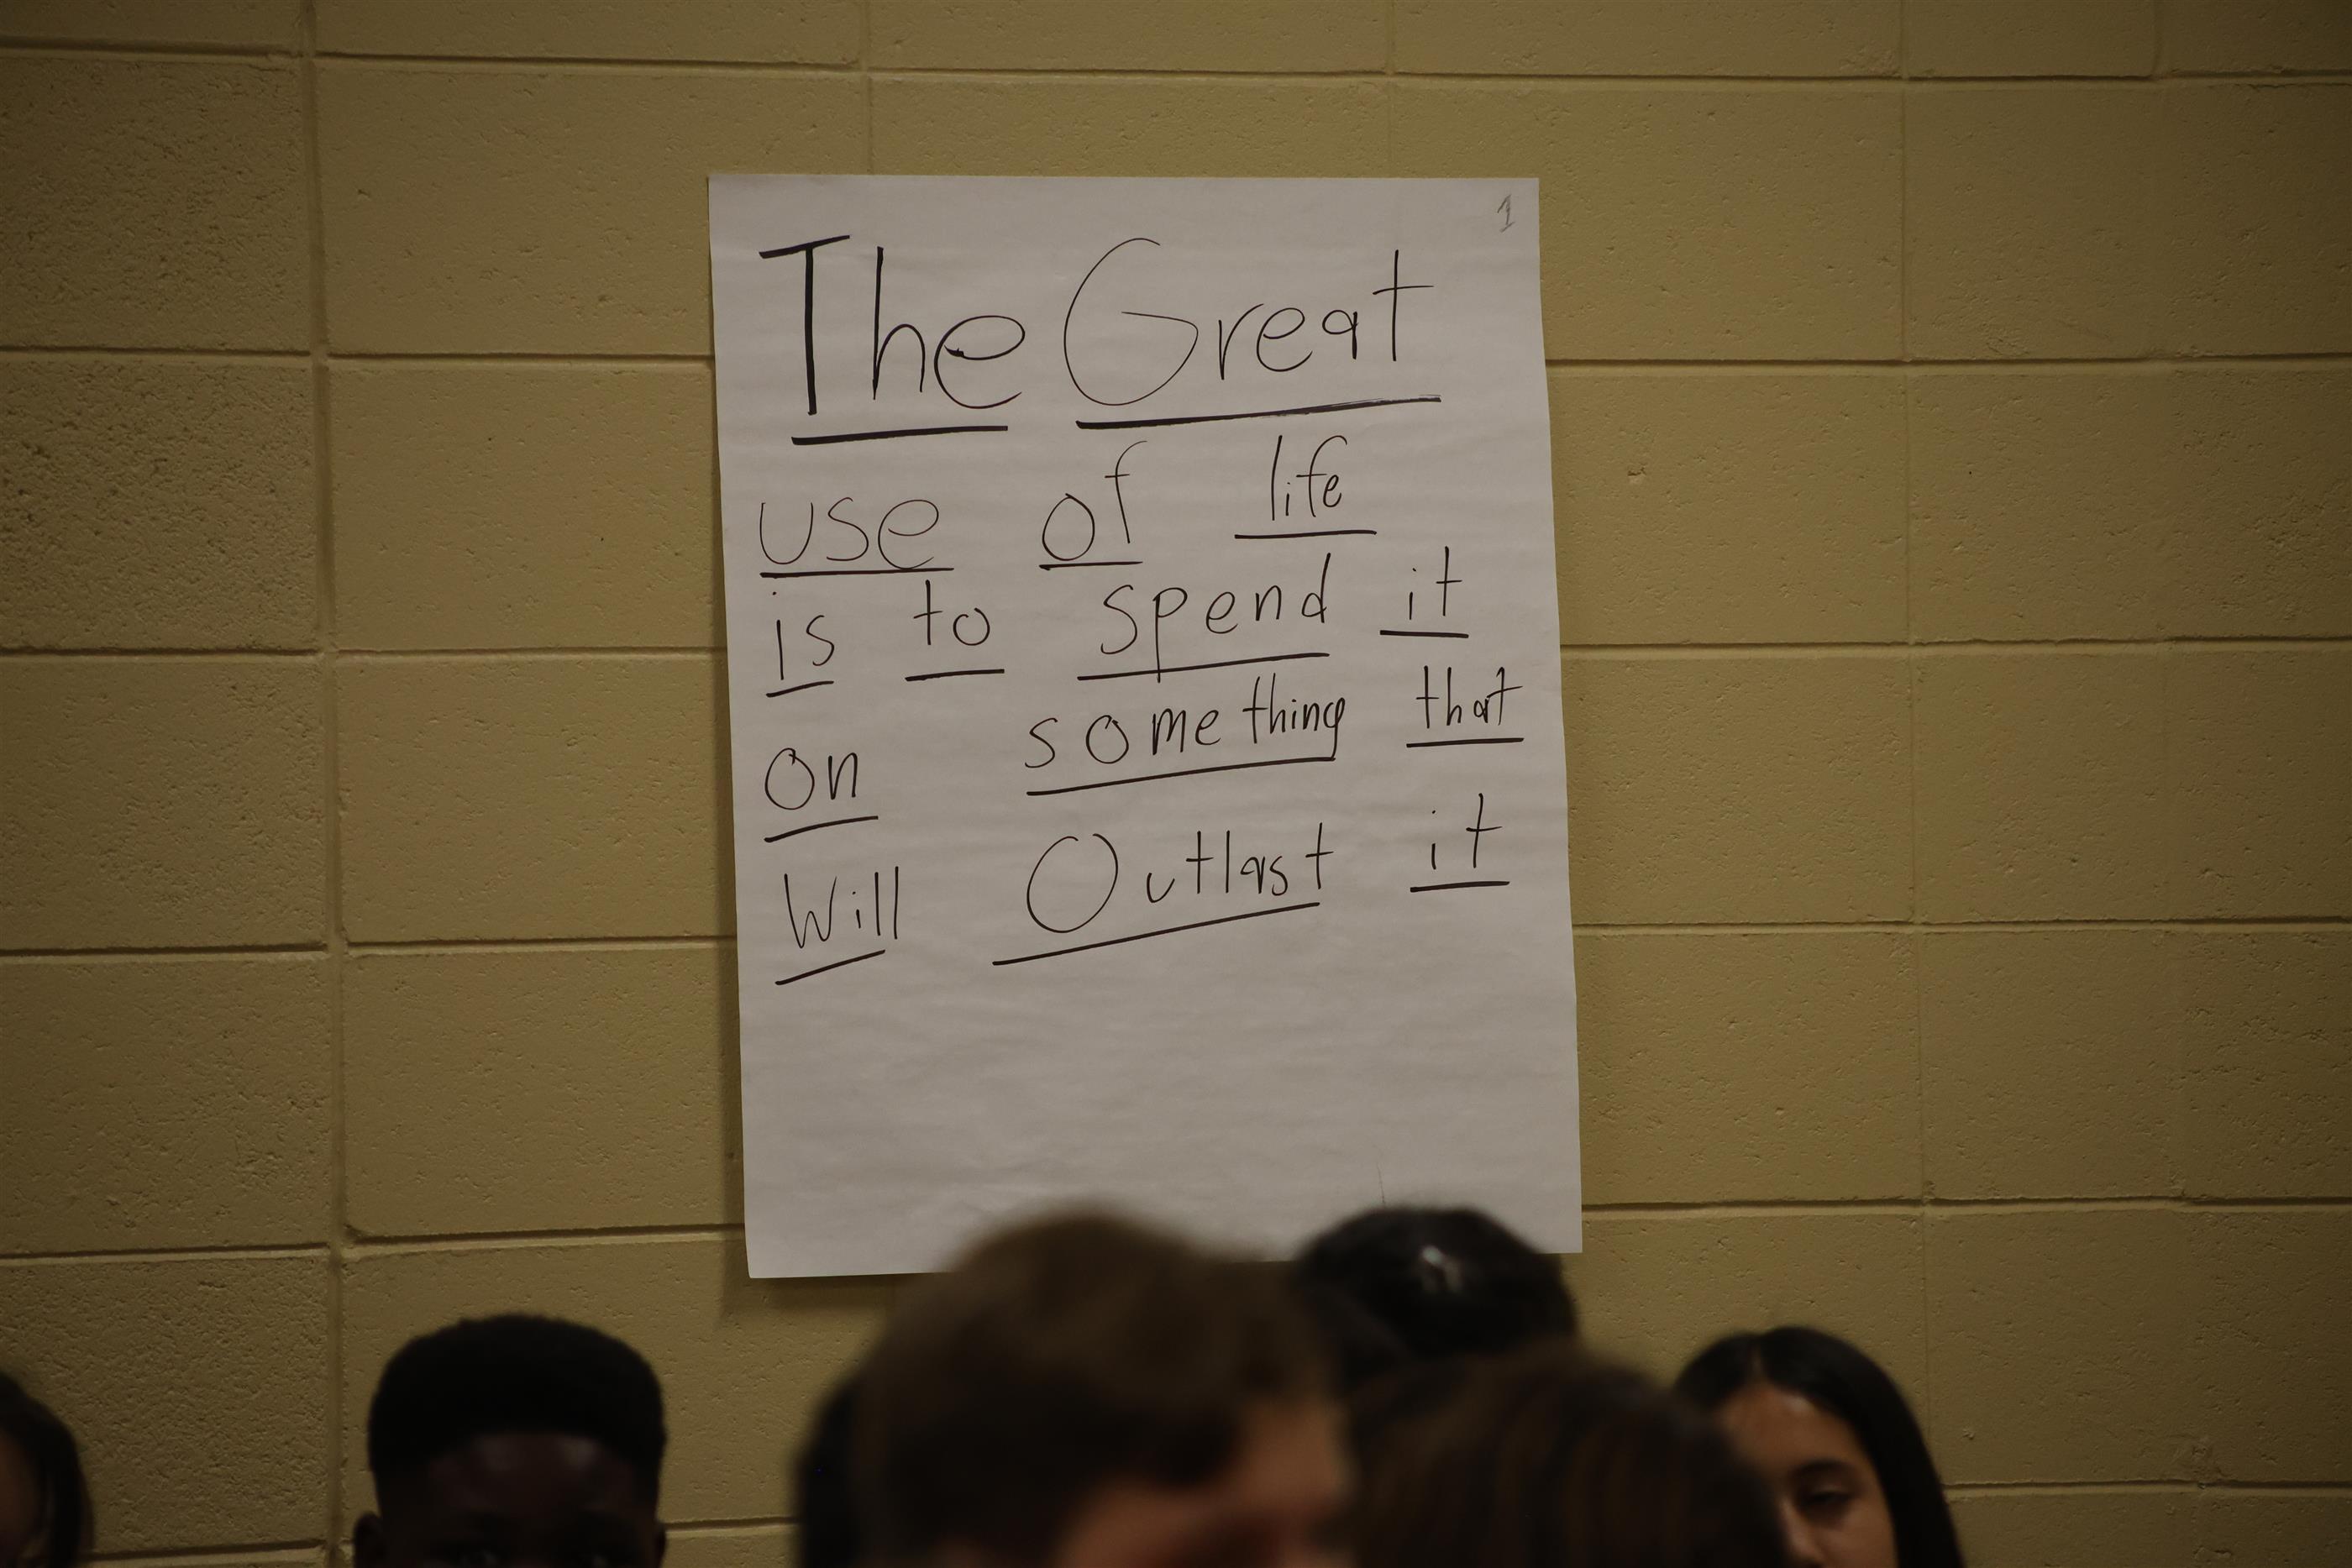 1
The Great
use of life
is to spend it
on something that
Will Outlast it